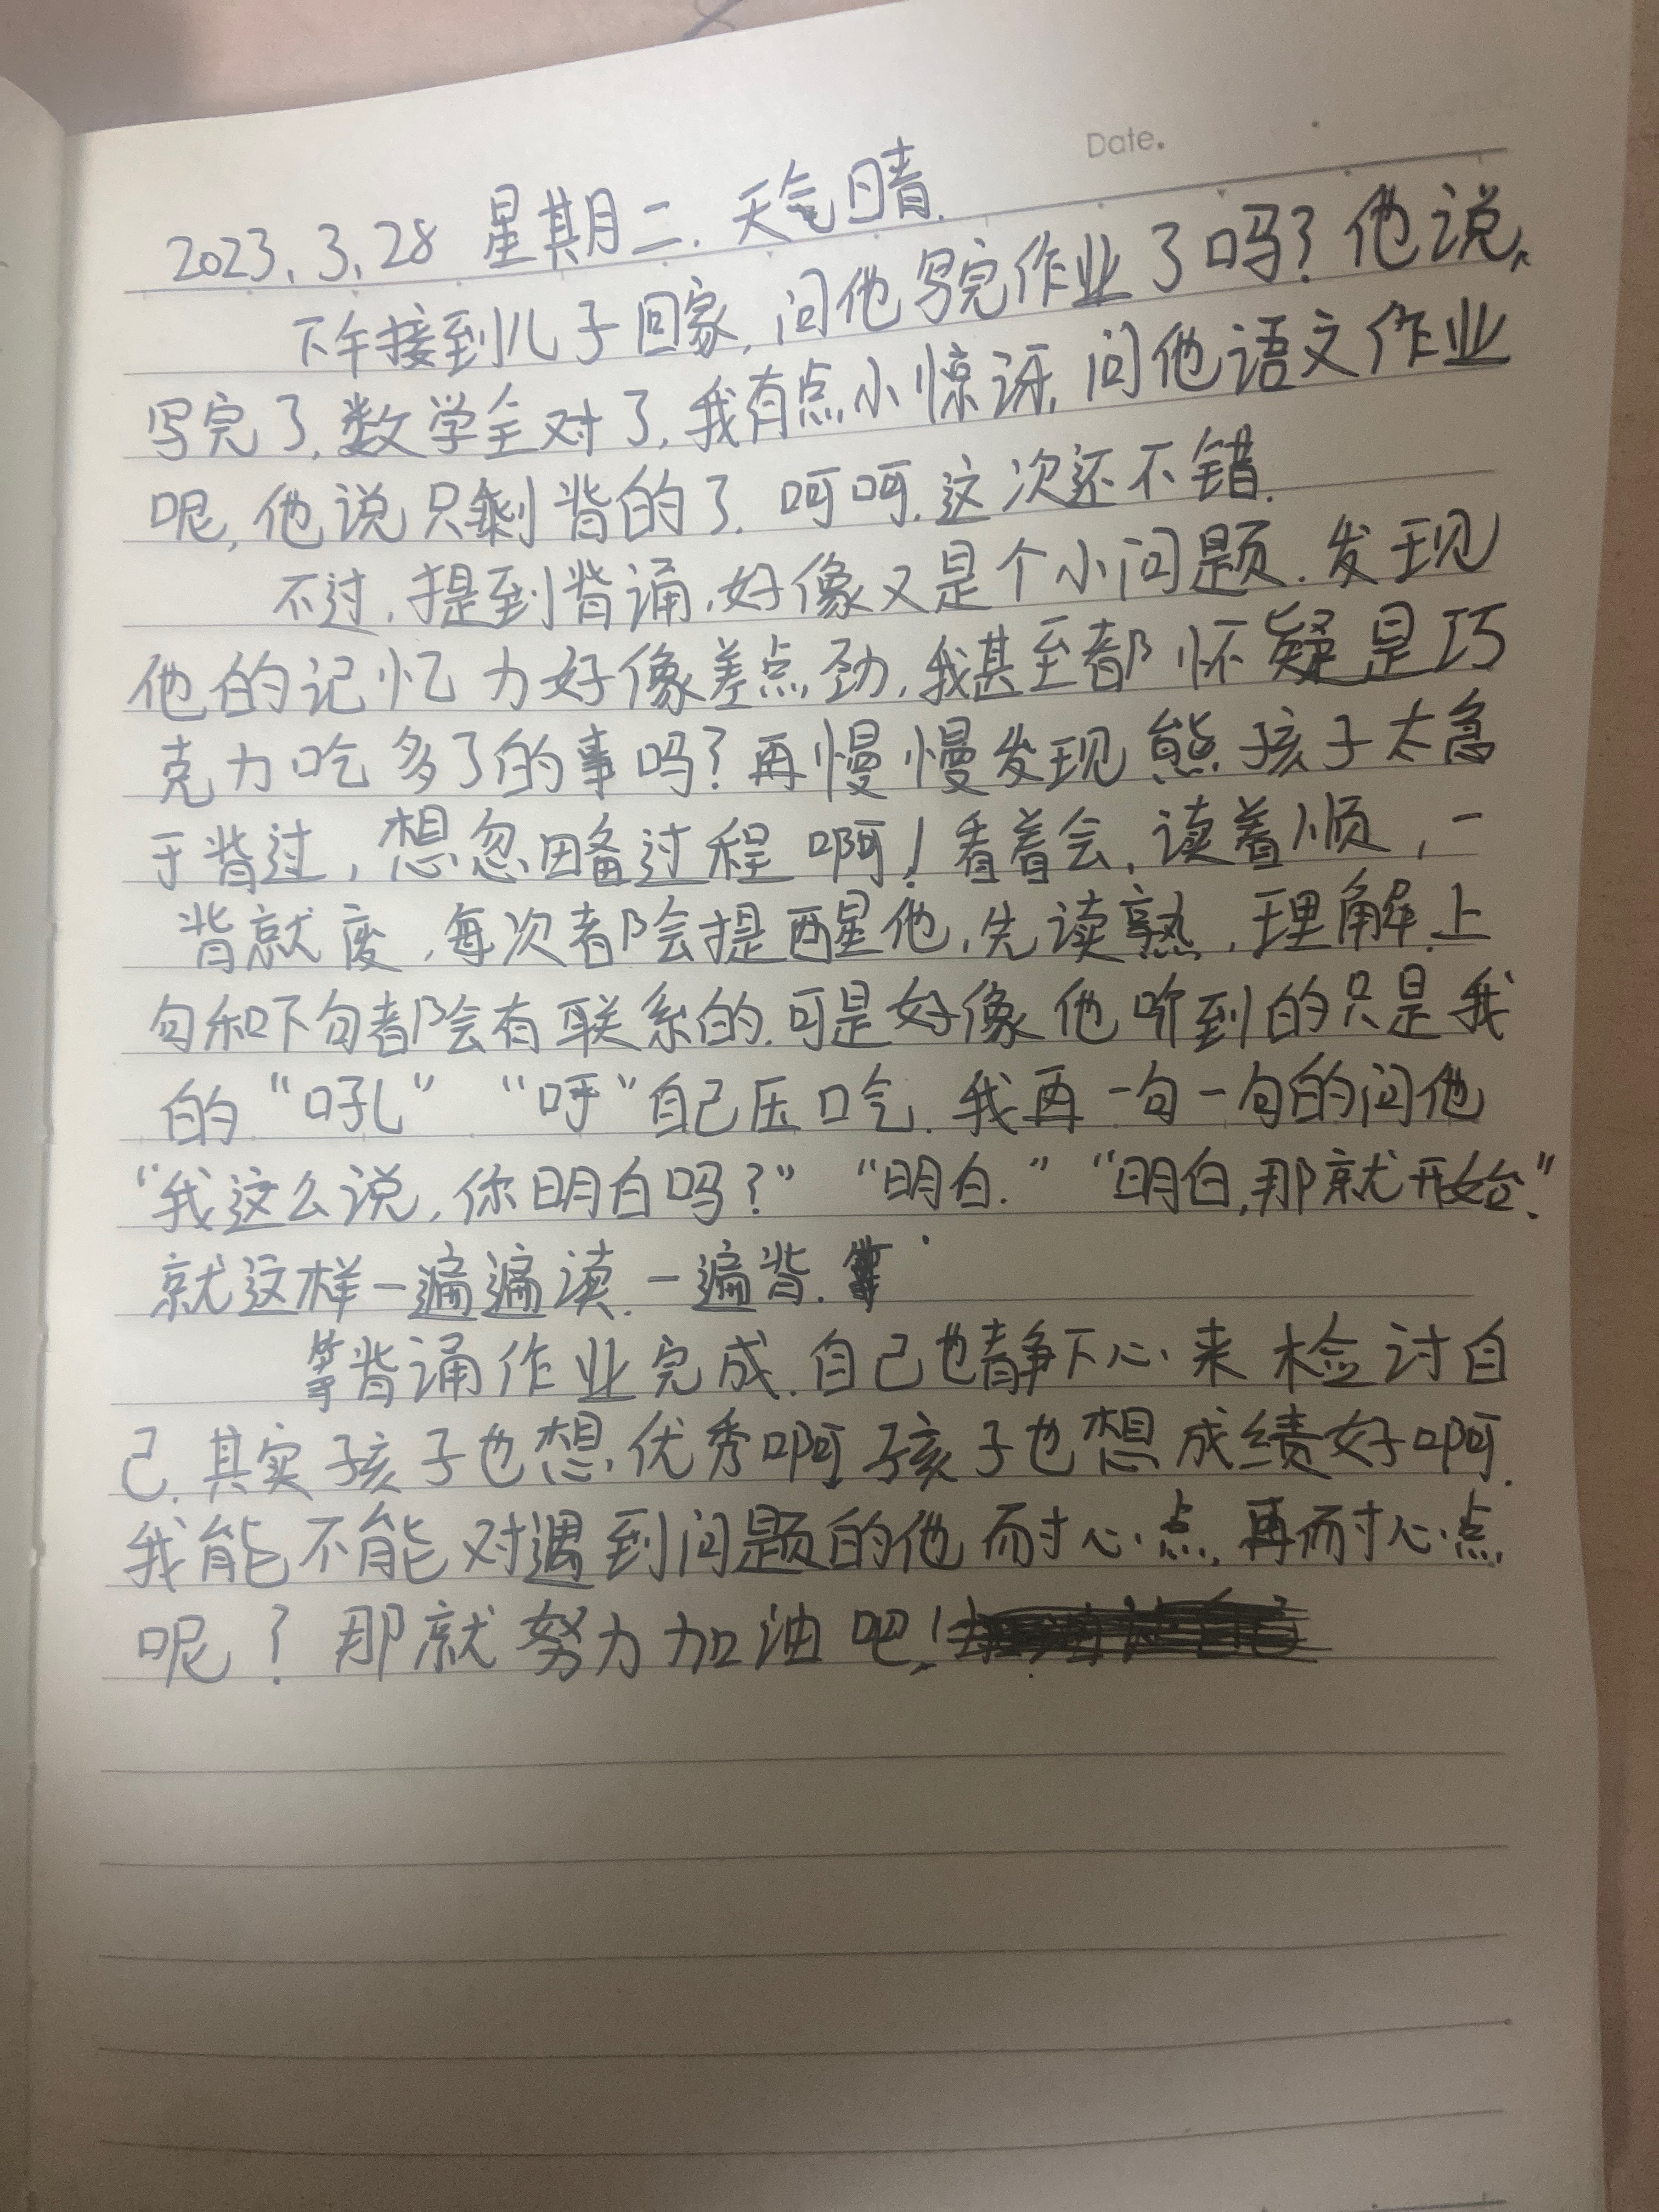 Date.
2023.3.28 星期二.天气晴.
下午接到儿子回家,问他写完作业了吗?他说,
写完了,数学全对了,我有点小惊讶,问他语文作业
呢,他说只剩背的了.呵呵,这次还不错.
不过,提到背诵,好像又是个小问题.发现
他的记忆力好像差点劲,我甚至都怀疑是巧
克力吃多了的事吗?再慢慢发现熊孩子太急
于背过,想忽略过程啊!看着会,读着顺,一
背就废,每次都会提醒他,先读熟,理解上
句和下句都会有联系的.可是好像他听到的只是我
的“吼”“呼”自己压口气.我再一句一句的问他
“我这么说,你明白吗?”“明白.”“明白,那就开始.”
就这样一遍遍读.一遍背.
等背诵作业完成.自己也静下心来检讨自
己.其实孩子也想优秀啊孩子也想成绩好啊.
我能不能对遇到问题的他耐心点,再耐心点
呢?那就努力加油吧!